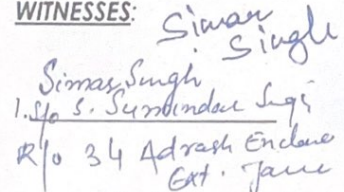 WITNESSES:
Simar
Singh
Simar Singh
1. S/o S. Surrindar Singh
R/o 34 Adrash Enclave
Ext.